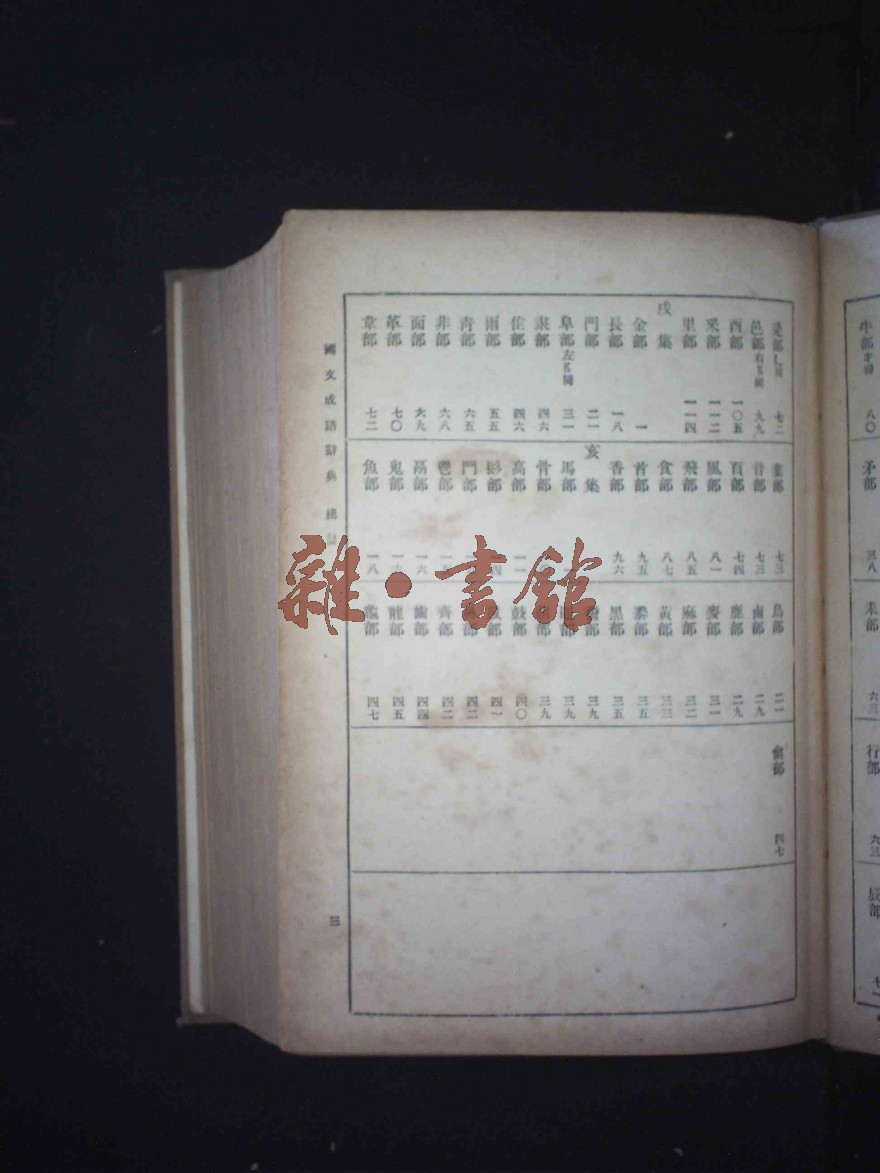 辵部 七二
邑部 右阝同 九九
酉部 一〇五
釆部 一一二
里部 一一四
戌集
金部 一
長部 一八
門部 二一
阜部 左阝同 三一
隶部 四六
隹部 四六
雨部 五五
靑部 六五
非部 六八
面部 六九
革部 七〇
韋部 七二
韭部 七三
音部 七三
頁部 七四
風部 八一
飛部 八五
食部 八七
首部 九五
香部 九六
亥集
馬部
骨部
高部 一一
髟部
鬥部
鬯部
鬲部 一六
鬼部 一六
魚部 一八
鳥部 二一
鹵部 二九
鹿部 二九
麥部 三一
麻部 三二
黃部 三三
黍部 三五
黑部 三五
部 三九
部 三九
部 三九
鼓部 四〇
部 四一
部 四二
齊部 四二
齒部 四四
龍部 四五
龜部 四七
龠部 四七
國文成語辭典 總
三
牛部 八〇
矛部 三八
耒部 六三
行部 九三
辰部 七一
雜·書館